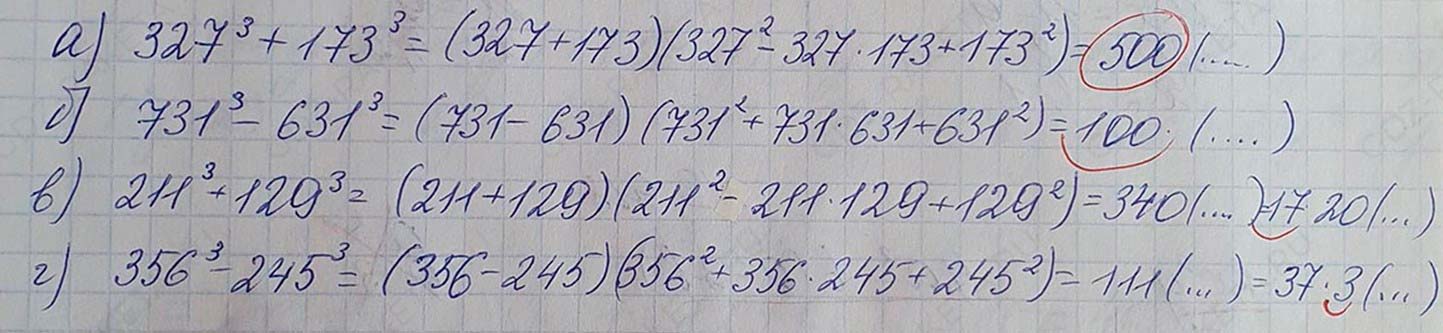 а) 327³ + 173³ = (327 + 173)(327² - 327 · 173 + 173²) = 500 (.....)
б) 731³ - 631³ = (731 - 631)(731² + 731 · 631 + 631²) = 100 · (....)
в) 211³ + 129³ = (211 + 129)(211² - 211 · 129 + 129²) = 340 (....) = 17 20 (...)
г) 356³ - 245³ = (356 - 245)(356² + 356 · 245 + 245²) = 111 (...) = 37 · 3 (...)